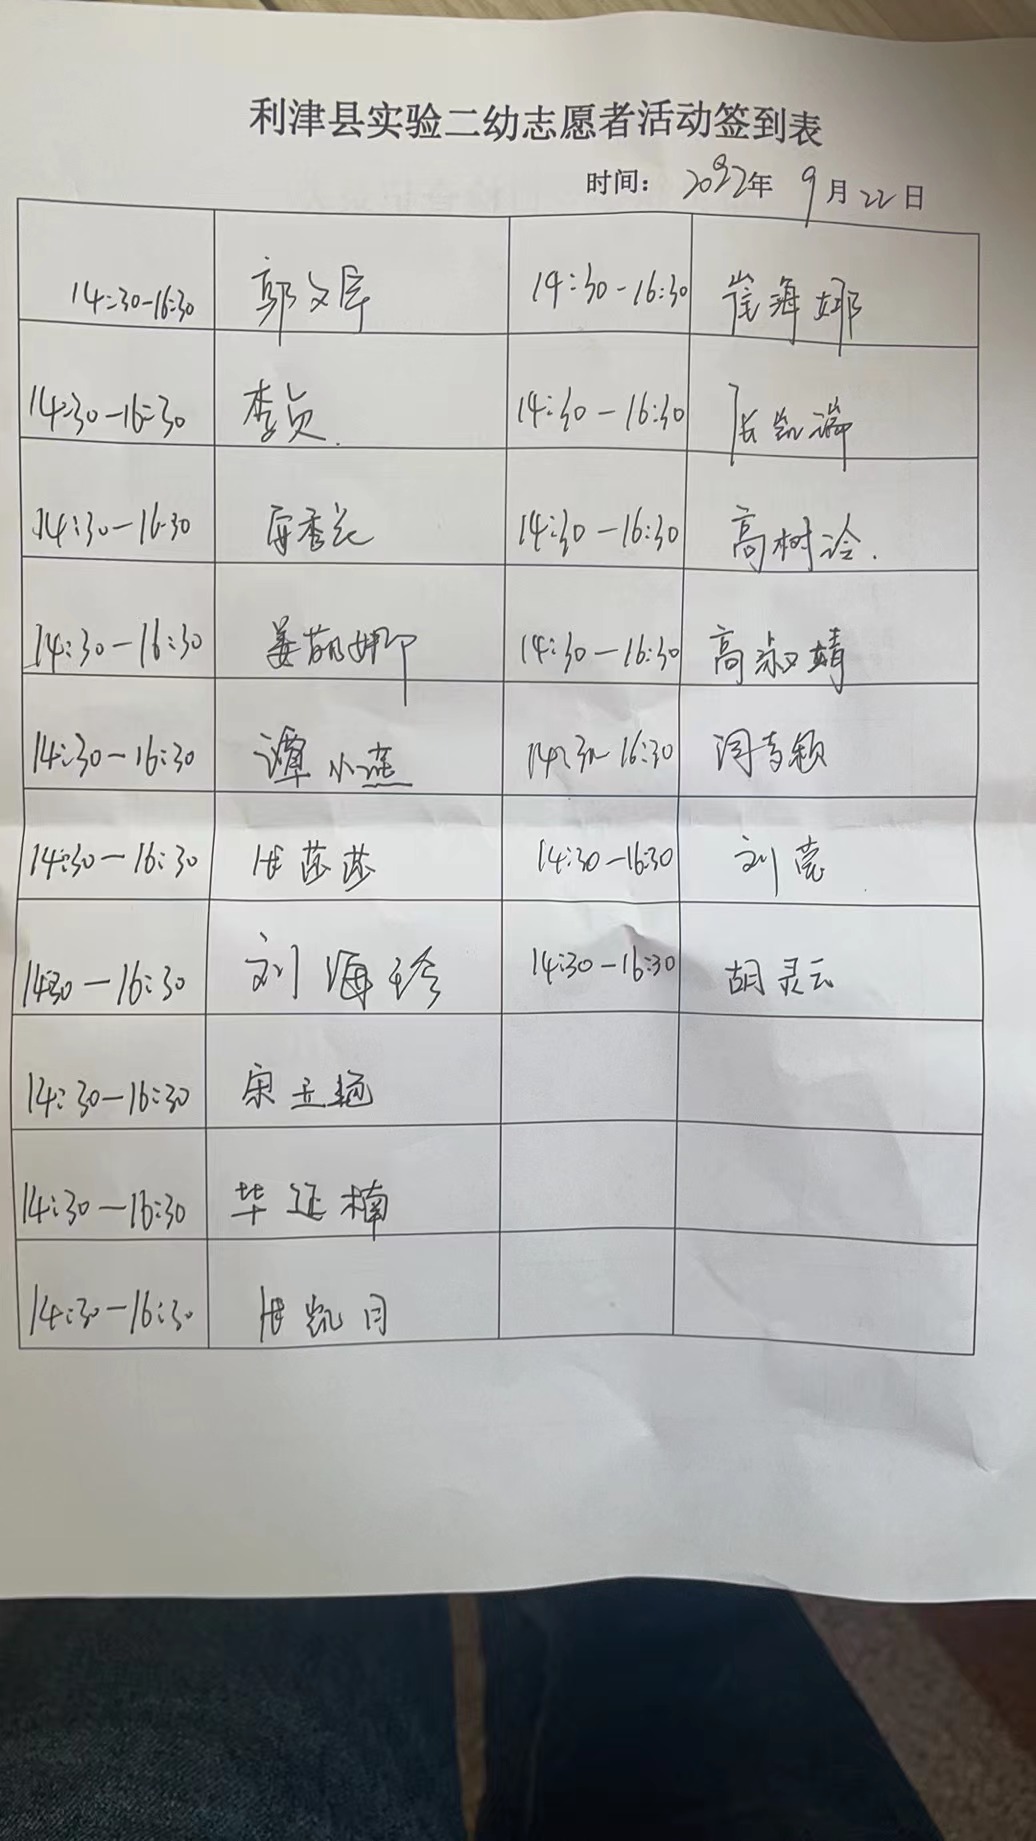 利津县实验二幼志愿者活动签到表
时间: 2022年 9月22日
14:30-16:30 郭文 14:30-16:30 崔海娜
14:30-16:30 李贞 14:30-16:30 张凯瑞
14:30-16:30 14:30-16:30 高树泠
14:30-16:30 姜萌娜 14:30-16:30 高淑婧
14:30-16:30 谭小燕 14:30-16:30 闫
14:30-16:30 莎莎 14:30-16:30 刘莞
1430-16:30 刘海珍 14:30-16:30 胡灵云
14:30-16:30 宋立
14:30-16:30 毕延楠
14:30-16:30 凯月